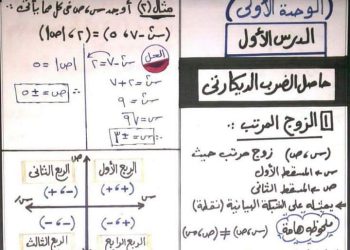 (الوحدة الأولى)
الدرس الأول
حاصل الضرب الديكارتى
١ الزوج المرتب :.
(س،ص) زوج مرتب حيث
س = المسقط الأول
ص = المسقط الثانى
يمثله على الشبكة البيانية (نقطة)
ملحوظة هامة
(س،ص) ≠ (ص،س)
مثال (٢) أوجد س،ص فى كل مما يأتى
(س²-٧،٥) = (٢،|ص|)
الحل
س²-٧=٢
س²=٢+٧
س²=٩
س=√٩
∴ س=±٣
|ص|=٥
∴ ص=±٥
ص
الربع الثانى
(-،+)
الربع الأول
(+،+)
س
س
(-،-)
الربع الثالث
(+،-)
الربع الرابع